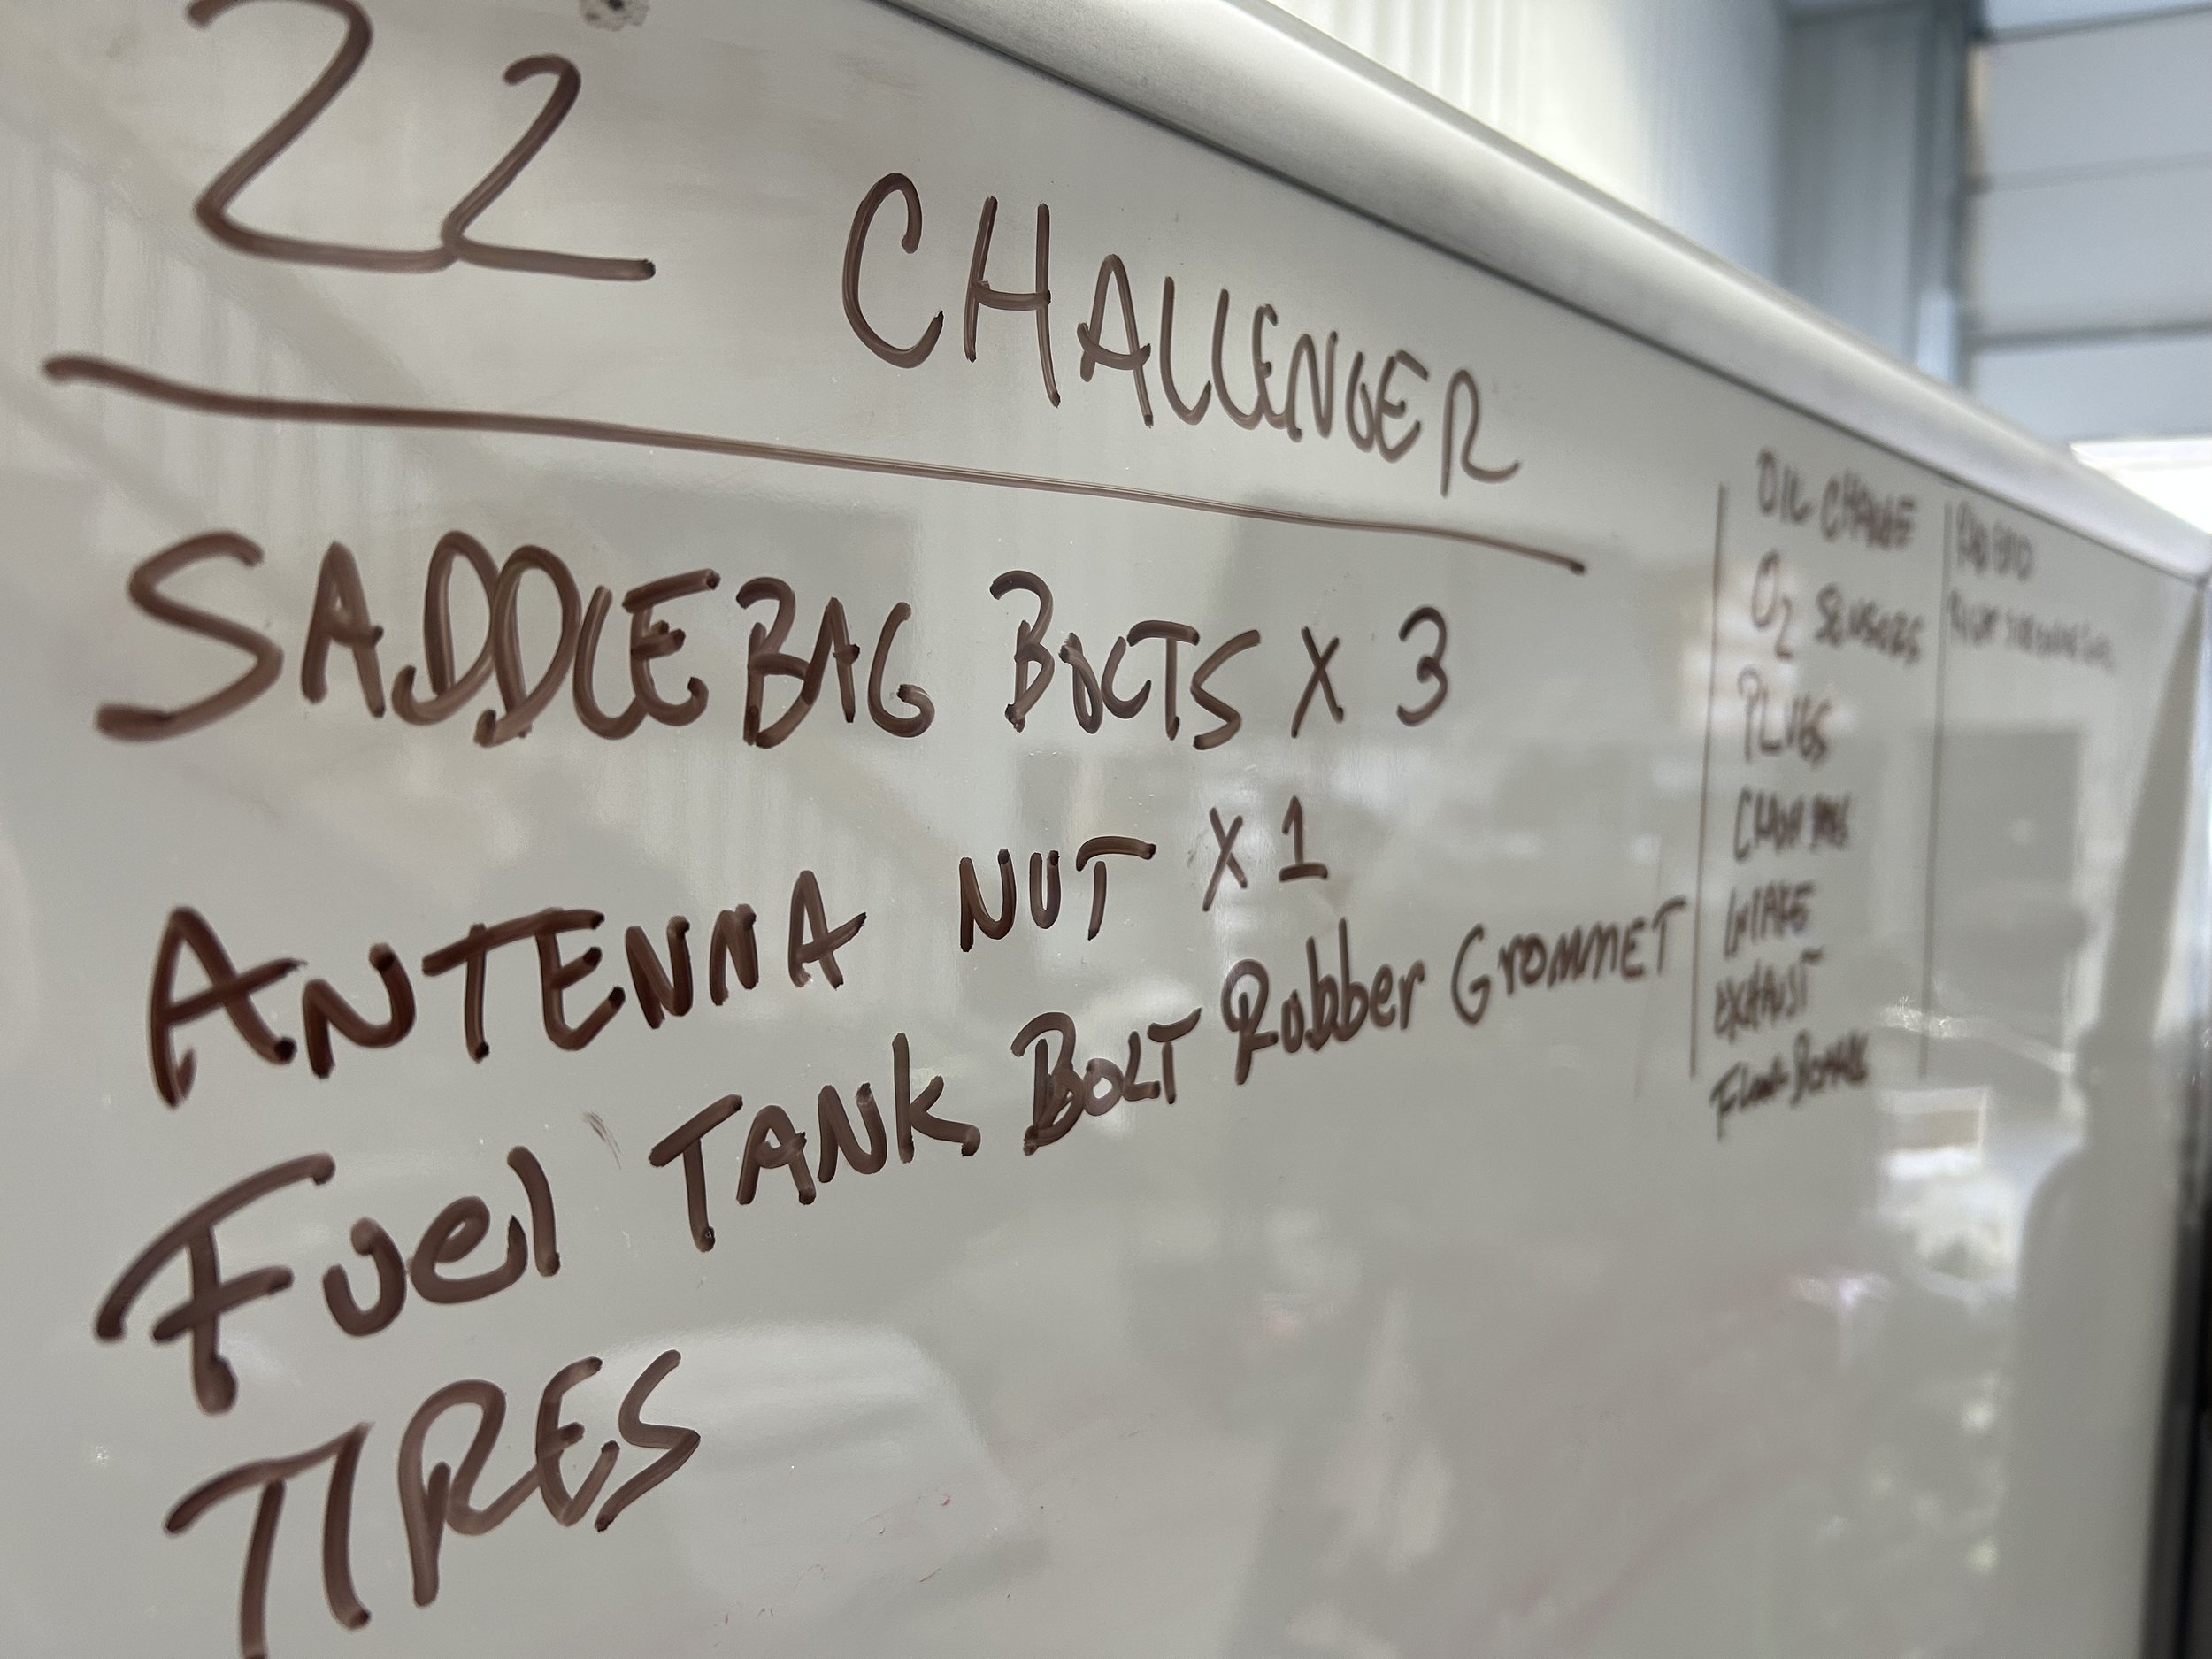 22 CHALLENGER
SADDLEBAG BOLTS X 3
ANTENNA NUT X 1
Fuel TANK BOLT Rubber GrommET
TIRES
OIL CHANGE
O2 SENSORS
PLUGS
INTAKE
EXHAUST